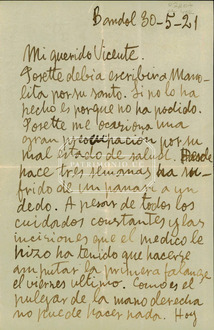 Bandol 30-5-21
Mi querido Vicente.
Josette debia escribir a Mano-
lita por su santo. Si no lo ha
hecho es porque no ha podido.
Josette me ocasiona una
gran preocupación por su
mal estado de salud. Desde
hace tres semanas ha su-
frido de un panari a un
dedo. A pesar de todos los
cuidados constantes y las
incisiones que el medico le
hizo ha tenido que hacerse
amputar la primera falange
el viernes ultimo. Como es el
pulgar de la mano derecha
no puede hacer nada. Hoy